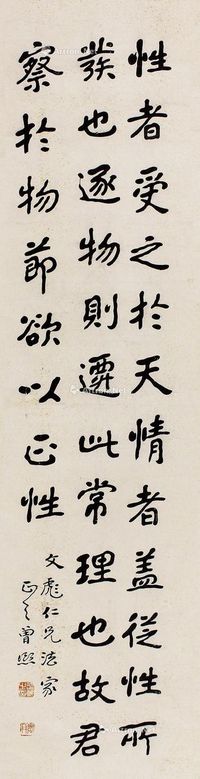 性者受之於天情者蓋従性所
發也逐物則遷此常理也故君
察於物節欲以正性
文彪仁兄法家
正之曾熙